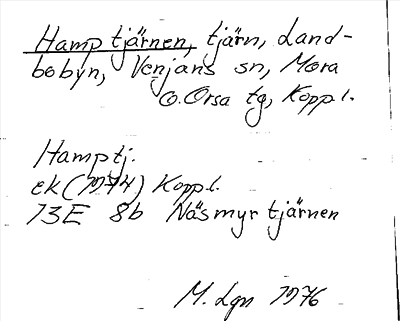 Hamptjärnen, tjärn, Land-
bobyn, Venjans sn, Mora
o. Orsa tg, Kopp.l.
Hamptj.
ek (1974) Kopp.l.
13E 8b Näsmyrtjärnen
M. Lgn 1976